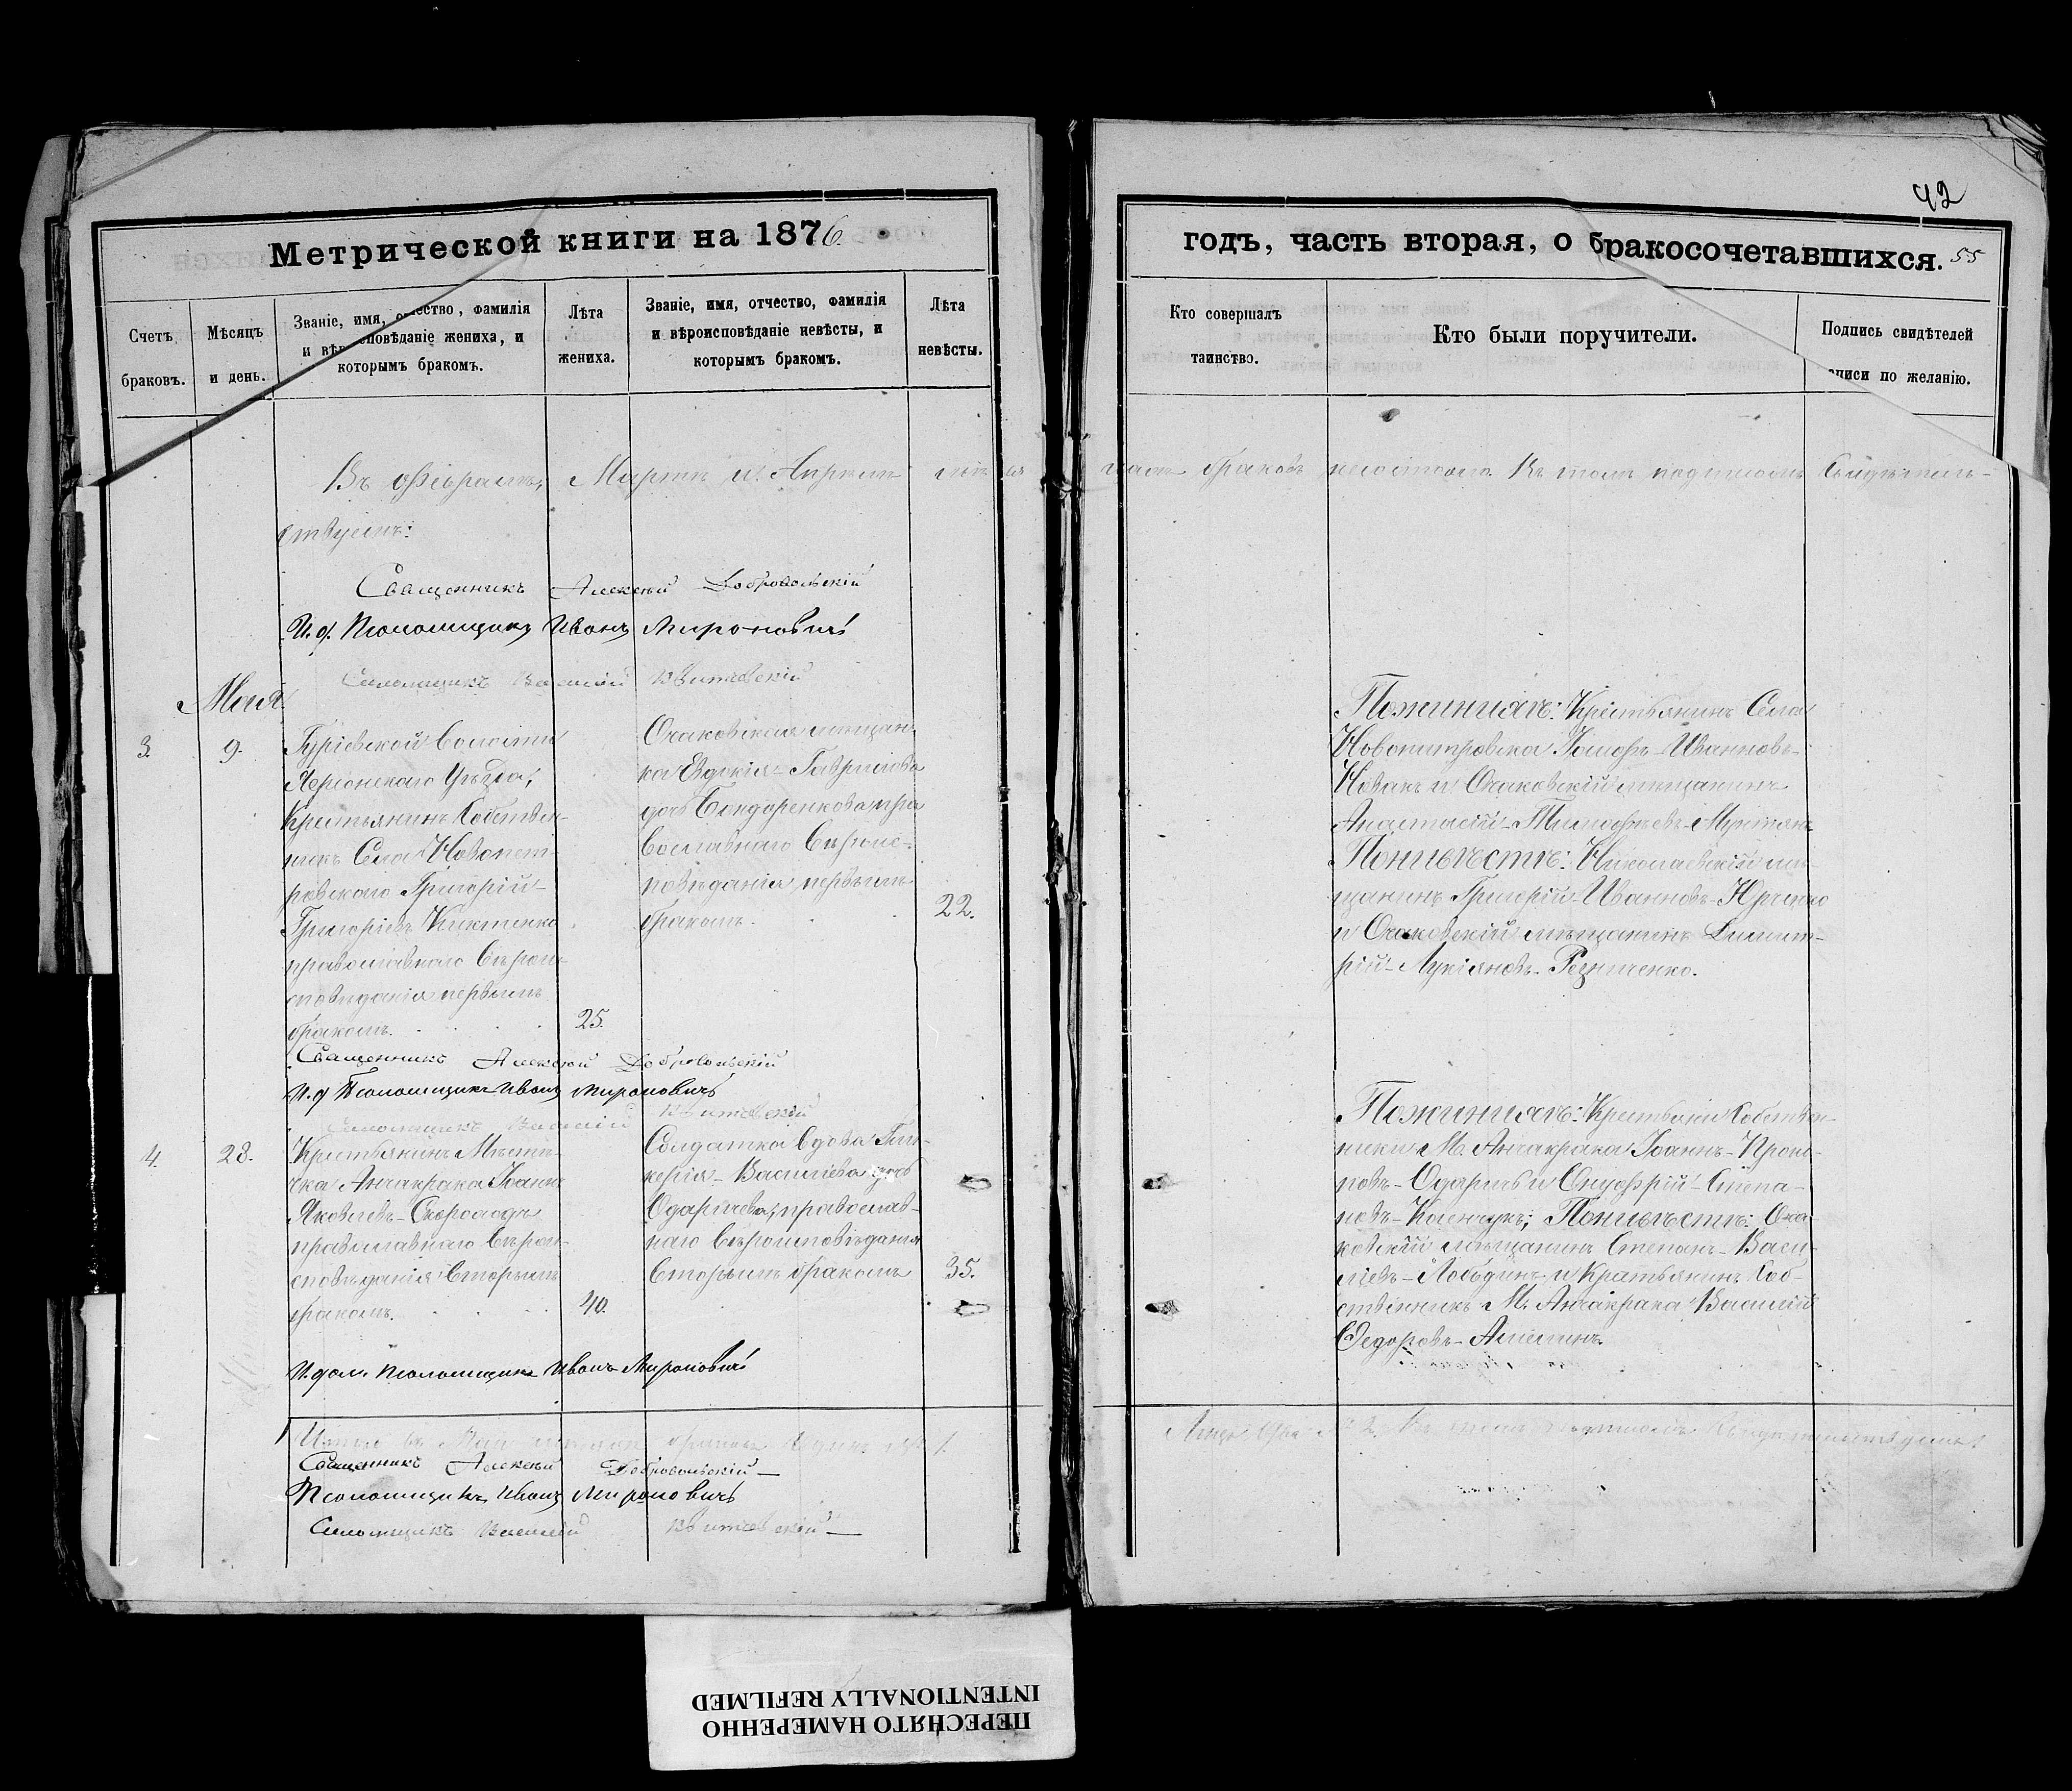 42
Метрической книги на 1876.
годъ, часть вторая, о бракосочетавшихся. 55
Счетъ браковъ.
Мѣсяцъ и день.
Званіе, имя, отчество, фамилія
и вѣроисповѣданіе жениха, и
которымъ бракомъ.
Лѣта
жениха.
Званіе, имя, отчество, фамилія
и вѣроисповѣданіе невѣсты, и
которымъ бракомъ.
Лѣта
невѣсты.
Кто совершалъ
таинство.
Кто были поручители.
Подпись свидѣтелей
записи по желанію.
Въ Февралѣ, Мартѣ и Апрѣлѣ мѣсяцахъ браковъ несостояло. Въ томъ подписомъ свидѣтель-
ствуемъ:
Священникъ Алексѣй Добровольскій
И. д. Псаломщика Иванъ Мироновичъ
Псаломщикъ Василій Квитковскій
Мая.
3. 9.
Гуріевской Волости
Херсонскаго Уѣзда,
Крестьянинъ Собствен-
никъ Села Новопет-
ровскаго Григорій
Григоріевъ Никитенко
православнаго вѣрои-
сповѣданія первымъ
бракомъ. 25.
Очаковская мѣщан-
ка Евдокія Гаврилова
дочь Бондаренкова пра-
вославнаго вѣроис-
повѣданія первымъ
бракомъ. 22.
По женихѣ: Крестьянинъ Села
Новопетровска Іосифъ Ивановъ
Новакъ и Очаковскій мѣщанинъ
Анастасій Тимофѣевъ Мунтянъ
По невѣстѣ: Николаевскій мѣ-
щанинъ Григорій Ивановъ Юрченко
и Очаковскій мѣщанинъ Димит-
рій Лукіяновъ Резниченко.
Священникъ Алексѣй Добровольскій
И. д. Псаломщика Иванъ Мироновичъ
Псаломщикъ Василій Квитковскій
4. 28.
Крестьянинъ Мѣстѣ-
чка Анчакрака Іоаннъ
Яковлевъ Скороходъ
православнаго вѣрои-
сповѣданія вторымъ
бракомъ. 40.
Солдатка вдова Гли-
керія Василіева дочь
Одаричева, православ-
наго вѣроисповѣданія
вторымъ бракомъ 35.
По женихѣ: Крестьяни Собствен-
ники М. Анчакрака Іоаннъ Проко-
повъ Одаричъ и Онуфрій Степа-
новъ; По невѣстѣ: Оча-
ковскій мѣщанинъ Степанъ Васи-
ліевъ Лободинъ и Крестьянинъ Соб-
ственникъ М. Анчакрака Василій
Федоровъ
И. дол. Псаломщика Иванъ Мироновичъ
Итого въ Маѣ мѣсяцѣ браковъ
Священникъ Алексѣй Добровольскій
Псаломщикъ Иванъ Мироновичъ
Псаломщикъ Василій Квитковскій
ПЕРЕСНЯТО НАМЕРЕННО
INTENTIONALLY REFILMED